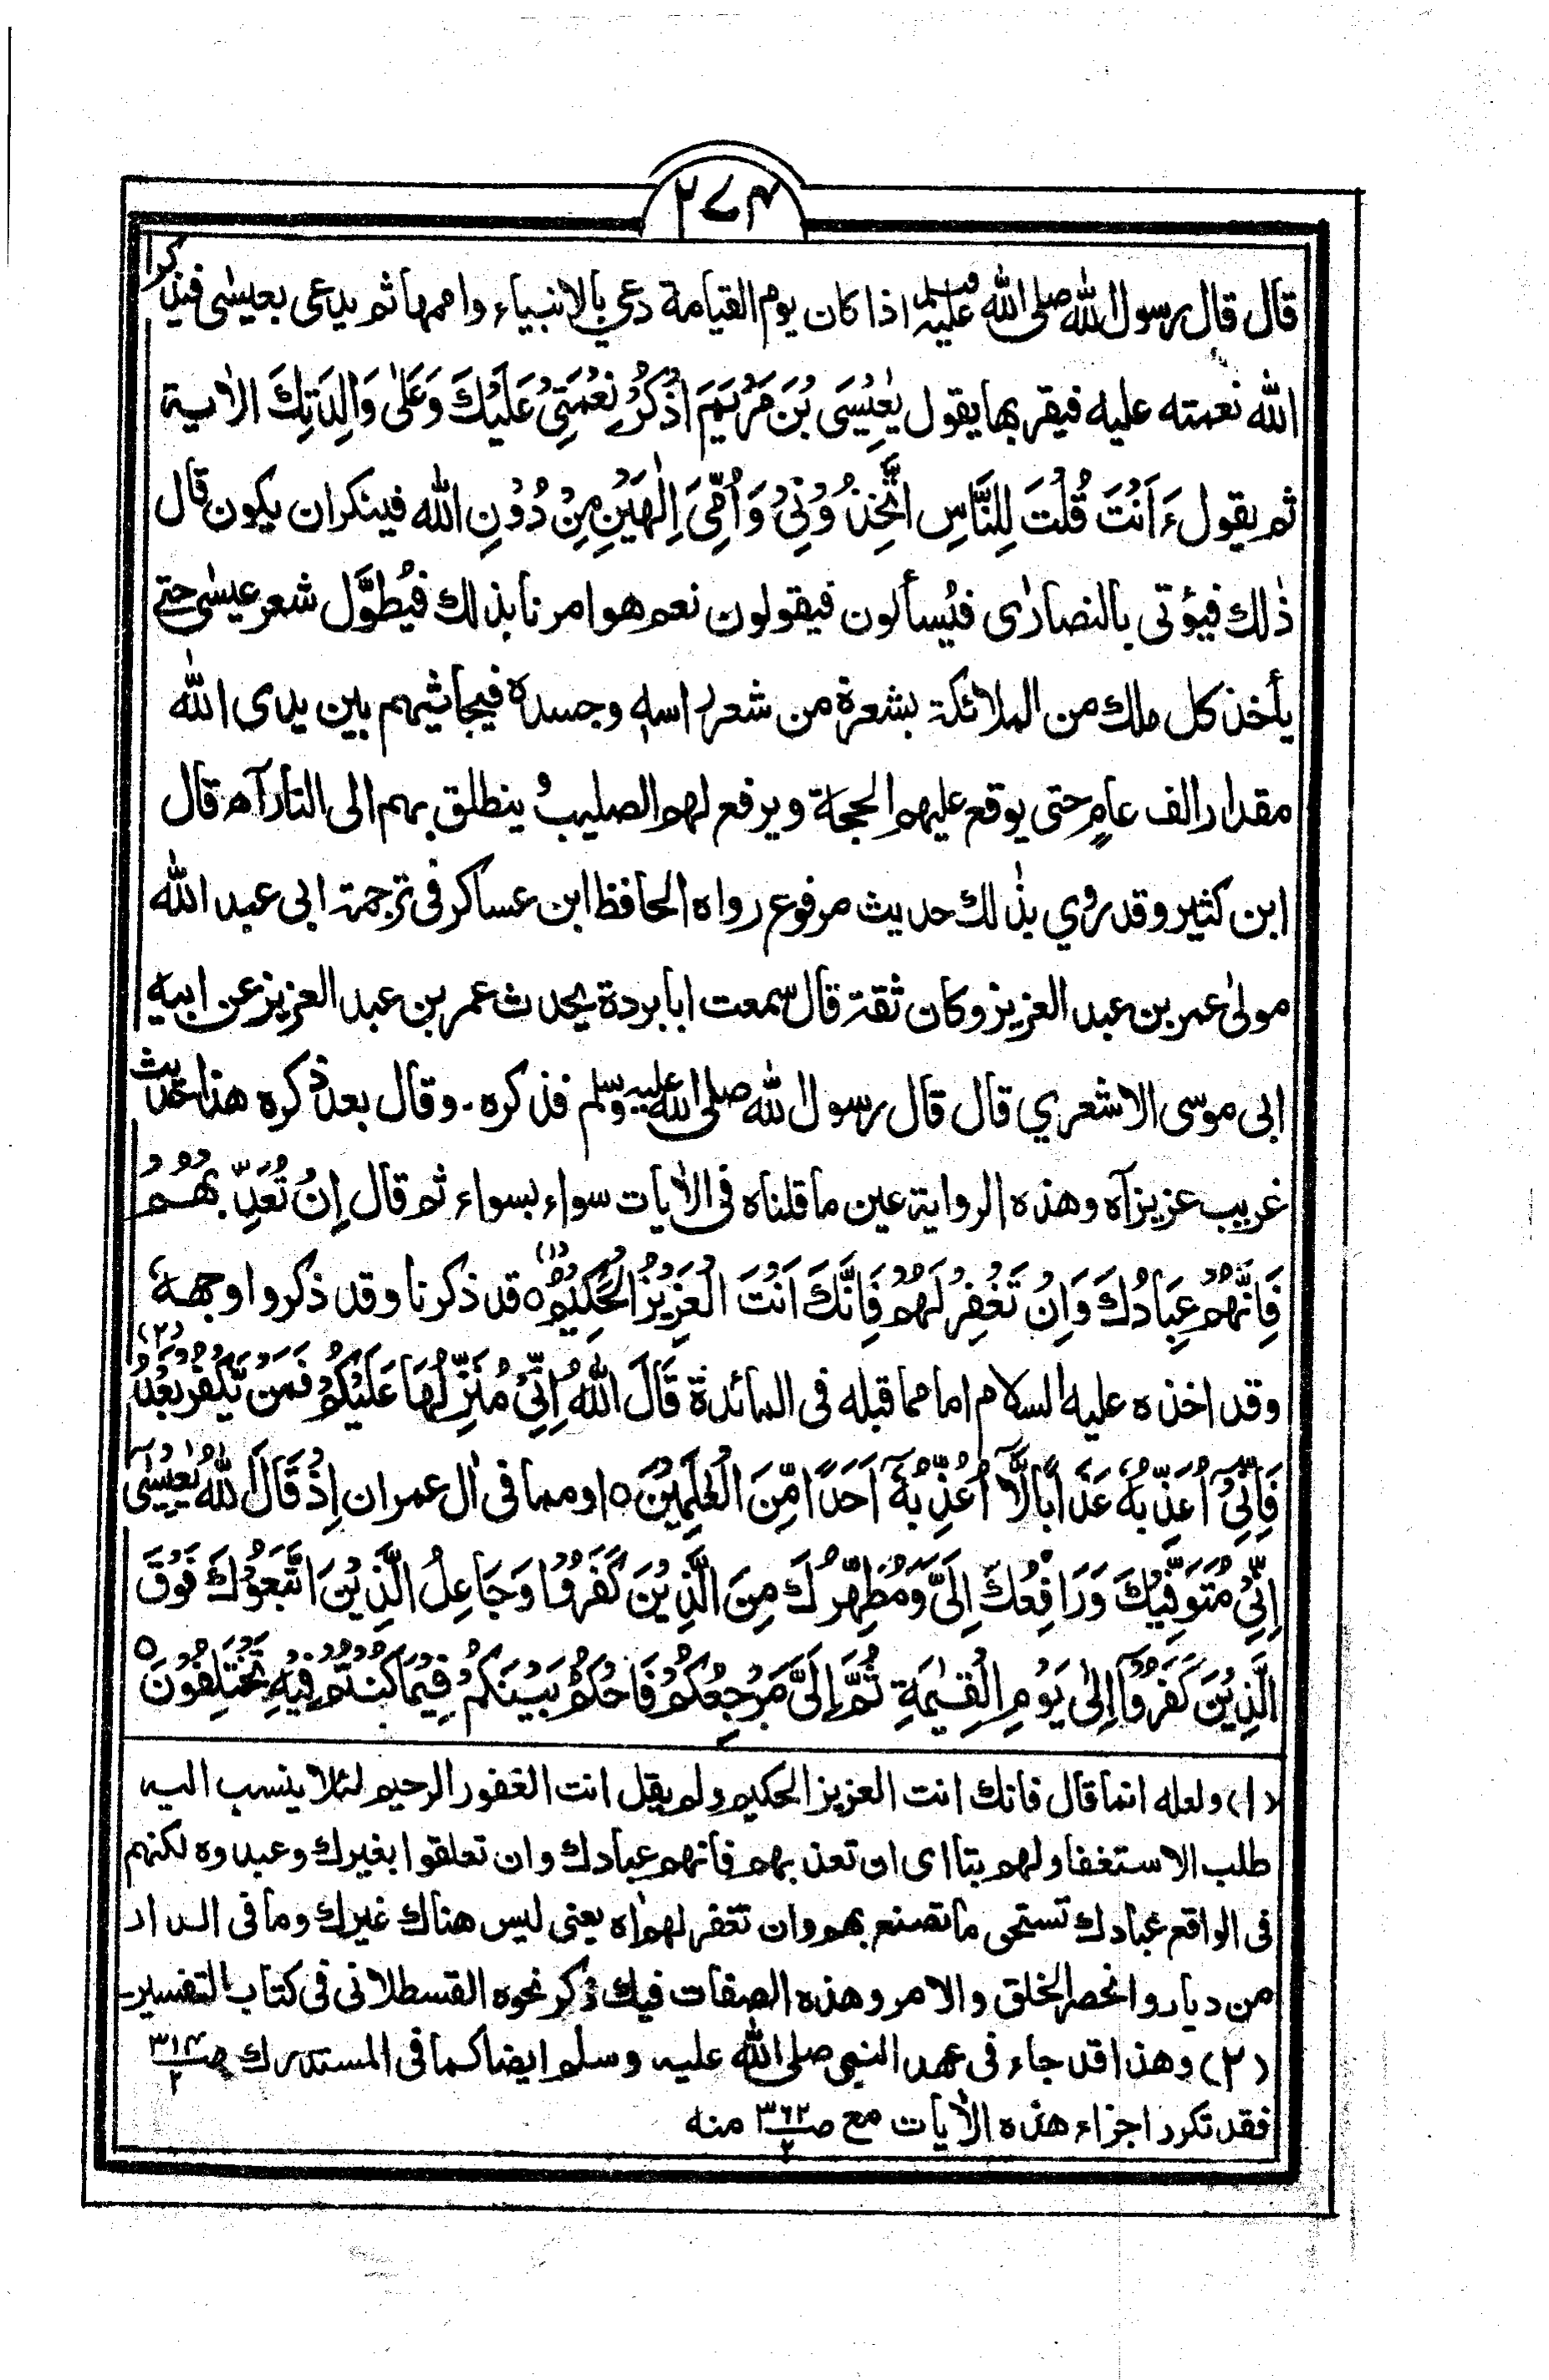 ٢٧٤
قال قال رسول الله صلى الله عليه وسلم اذا كان يوم القيامة دعي بالانبياء واممها ثم يدعى بعيسٰى فيذكرا
الله نعمته عليه فيقر بها يقول يٰعِيْسَى بْنَ مَرْيَمَ اذْكُرْ نِعْمَتِىْ عَلَيْكَ وَعَلٰى وَالِدَتِكَ الاٰية
ثم يقول ءَاَنْتَ قُلْتَ لِلنَّاسِ اتَّخِذُوْنِىْ وَاُمِّىَ اِلٰهَيْنِ مِنْ دُوْنِ الله فينكر ان يكون قال
ذٰلك فيؤتى بالنصارٰى فيُسألون فيقولون نعم هو امرنا بذلك فيُطوَّل شعر عيسٰى حتى
يأخذ كل ملك من الملائكة بشعرة من شعر راسه وجسده فيجاثيهم بين يدى الله
مقدار الف عامٍ حتى يوقع عليهم الحجة ويرفع لهم الصليب و ينطلق بهم الى النار آه قال
ابن كثير وقد رُوي بذٰلك حديث مرفوع رواه الحافظ ابن عساكر فى ترجمة ابى عبد الله
مولٰى عمر بن عبد العزيز وكان ثقة قال سمعت ابا بردة يحدث عمر بن عبد العزيز عن ابيه
ابى موسى الاشعري قال قال رسول الله صلى الله عليه وسلم فذكره۔ وقال بعد ذكره هذا حديث
غريب عزيز آه وهذه الرواية عين ما قلناه فى الاٰيات سواء بسواء ثم قال اِنْ تُعَذِّبْهُمْ
فَاِنَّهُمْ عِبَادُكَ وَاِنْ تَغْفِرْ لَهُمْ فَاِنَّكَ اَنْتَ الْعَزِيْزُ الْحَكِيْمُ ٥ (١) قد ذكرنا وقد ذكروا وجهه
وقد اخذه عليه السلام اما مما قبله فى المائدة قَالَ اللهُ اِنِّىْ مُنَزِّلُهَا عَلَيْكُمْ فَمَنْ يَّكْفُرْ بَعْدُ (٢)
فَاِنِّىْٓ اُعَذِّبُهٗ عَذَابًا لَّآ اُعَذِّبُهٗٓ اَحَدًا مِّنَ الْعٰلَمِيْنَ ٥ او مما فى اٰل عمران اِذْ قَالَ اللهُ يٰعِيْسٰى
اِنِّىْ مُتَوَفِّيْكَ وَرَافِعُكَ اِلَىَّ وَمُطَهِّرُكَ مِنَ الَّذِيْنَ كَفَرُوْا وَجَاعِلُ الَّذِيْنَ اتَّبَعُوْكَ فَوْقَ
الَّذِيْنَ كَفَرُوْٓا اِلٰى يَوْمِ الْقِيٰمَةِ ثُمَّ اِلَىَّ مَرْجِعُكُمْ فَاَحْكُمُ بَيْنَكُمْ فِيْمَا كُنْتُمْ فِيْهِ تَخْتَلِفُوْنَ ٥
(١) ولعله انما قال فانك انت العزيز الحكيم ولم يقل انت الغفور الرحيم لئلا ينسب اليه
طلب الاستغفار لهم بتا اى ان تعذبهم فانهم عبادك وان تعلقوا بغيرك وعبدوه لكنهم
فى الواقع عبادك تستحى ما تصنع بهم وان تغفر لهم اه يعنى ليس هناك غيرك وما فى الدار
من ديار وانحصر الخلق والامر وهذه الصفات فيك ذكر نحوه القسطلانى فى كتاب التفسير۔
(٢) وهذا قد جاء فى عهد النبى صلى الله عليه وسلم ايضا كما فى المستدرك صـ ٣١٤/٢
فقد تكرر اجزاء هذه الاٰيات مع صـ ٣٦٢/٢ منه